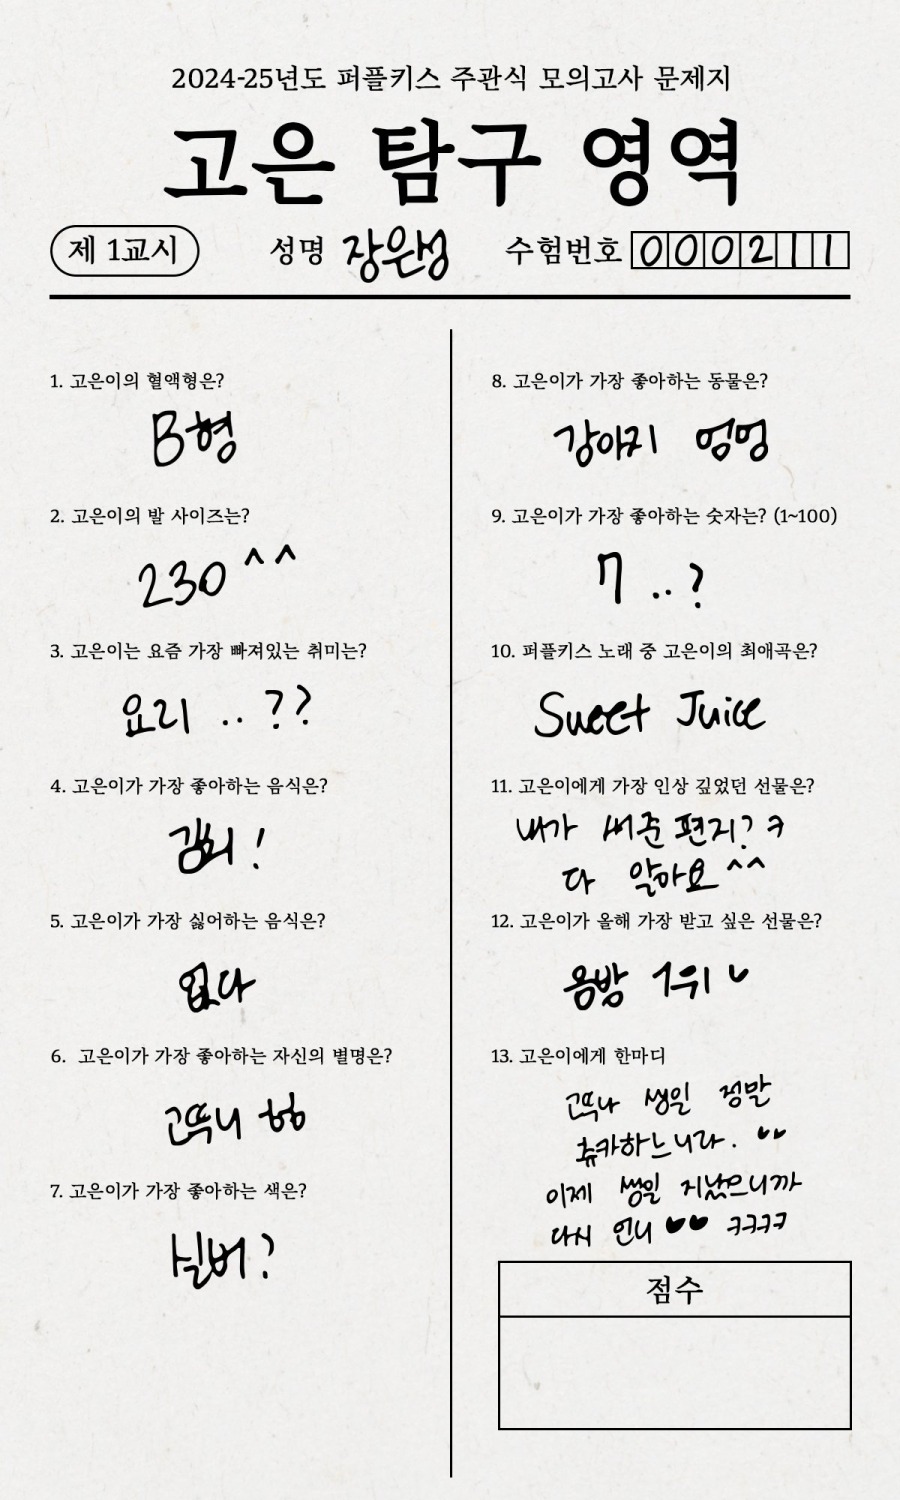 2024-25년도 퍼플키스 주관식 모의고사 문제지
고은 탐구 영역
제 1교시
성명 장은성
수험번호 000211
1. 고은이의 혈액형은?
B형
2. 고은이의 발 사이즈는?
230 ^^
3. 고은이는 요즘 가장 빠져있는 취미는?
요리 ..??
4. 고은이가 가장 좋아하는 음식은?
김치!
5. 고은이가 가장 싫어하는 음식은?
없다
6. 고은이가 가장 좋아하는 자신의 별명은?
고뜩니 ㅎㅎ
7. 고은이가 가장 좋아하는 색은?
실버?
8. 고은이가 가장 좋아하는 동물은?
강아지 멍멍
9. 고은이가 가장 좋아하는 숫자는? (1~100)
7 ..?
10. 퍼플키스 노래 중 고은이의 최애곡은?
Sweet Juice
11. 고은이에게 가장 인상 깊었던 선물은?
내가 써준 편지? ㅋ
다 알아요 ^^
12. 고은이가 올해 가장 받고 싶은 선물은?
음방 1위 ♥
13. 고은이에게 한마디
고뜩나 생일 정말
츄카하느니라. ♥♥
이제 생일 지났으니까
다시 언니 ♥♥ ㅋㅋㅋㅋ
점수